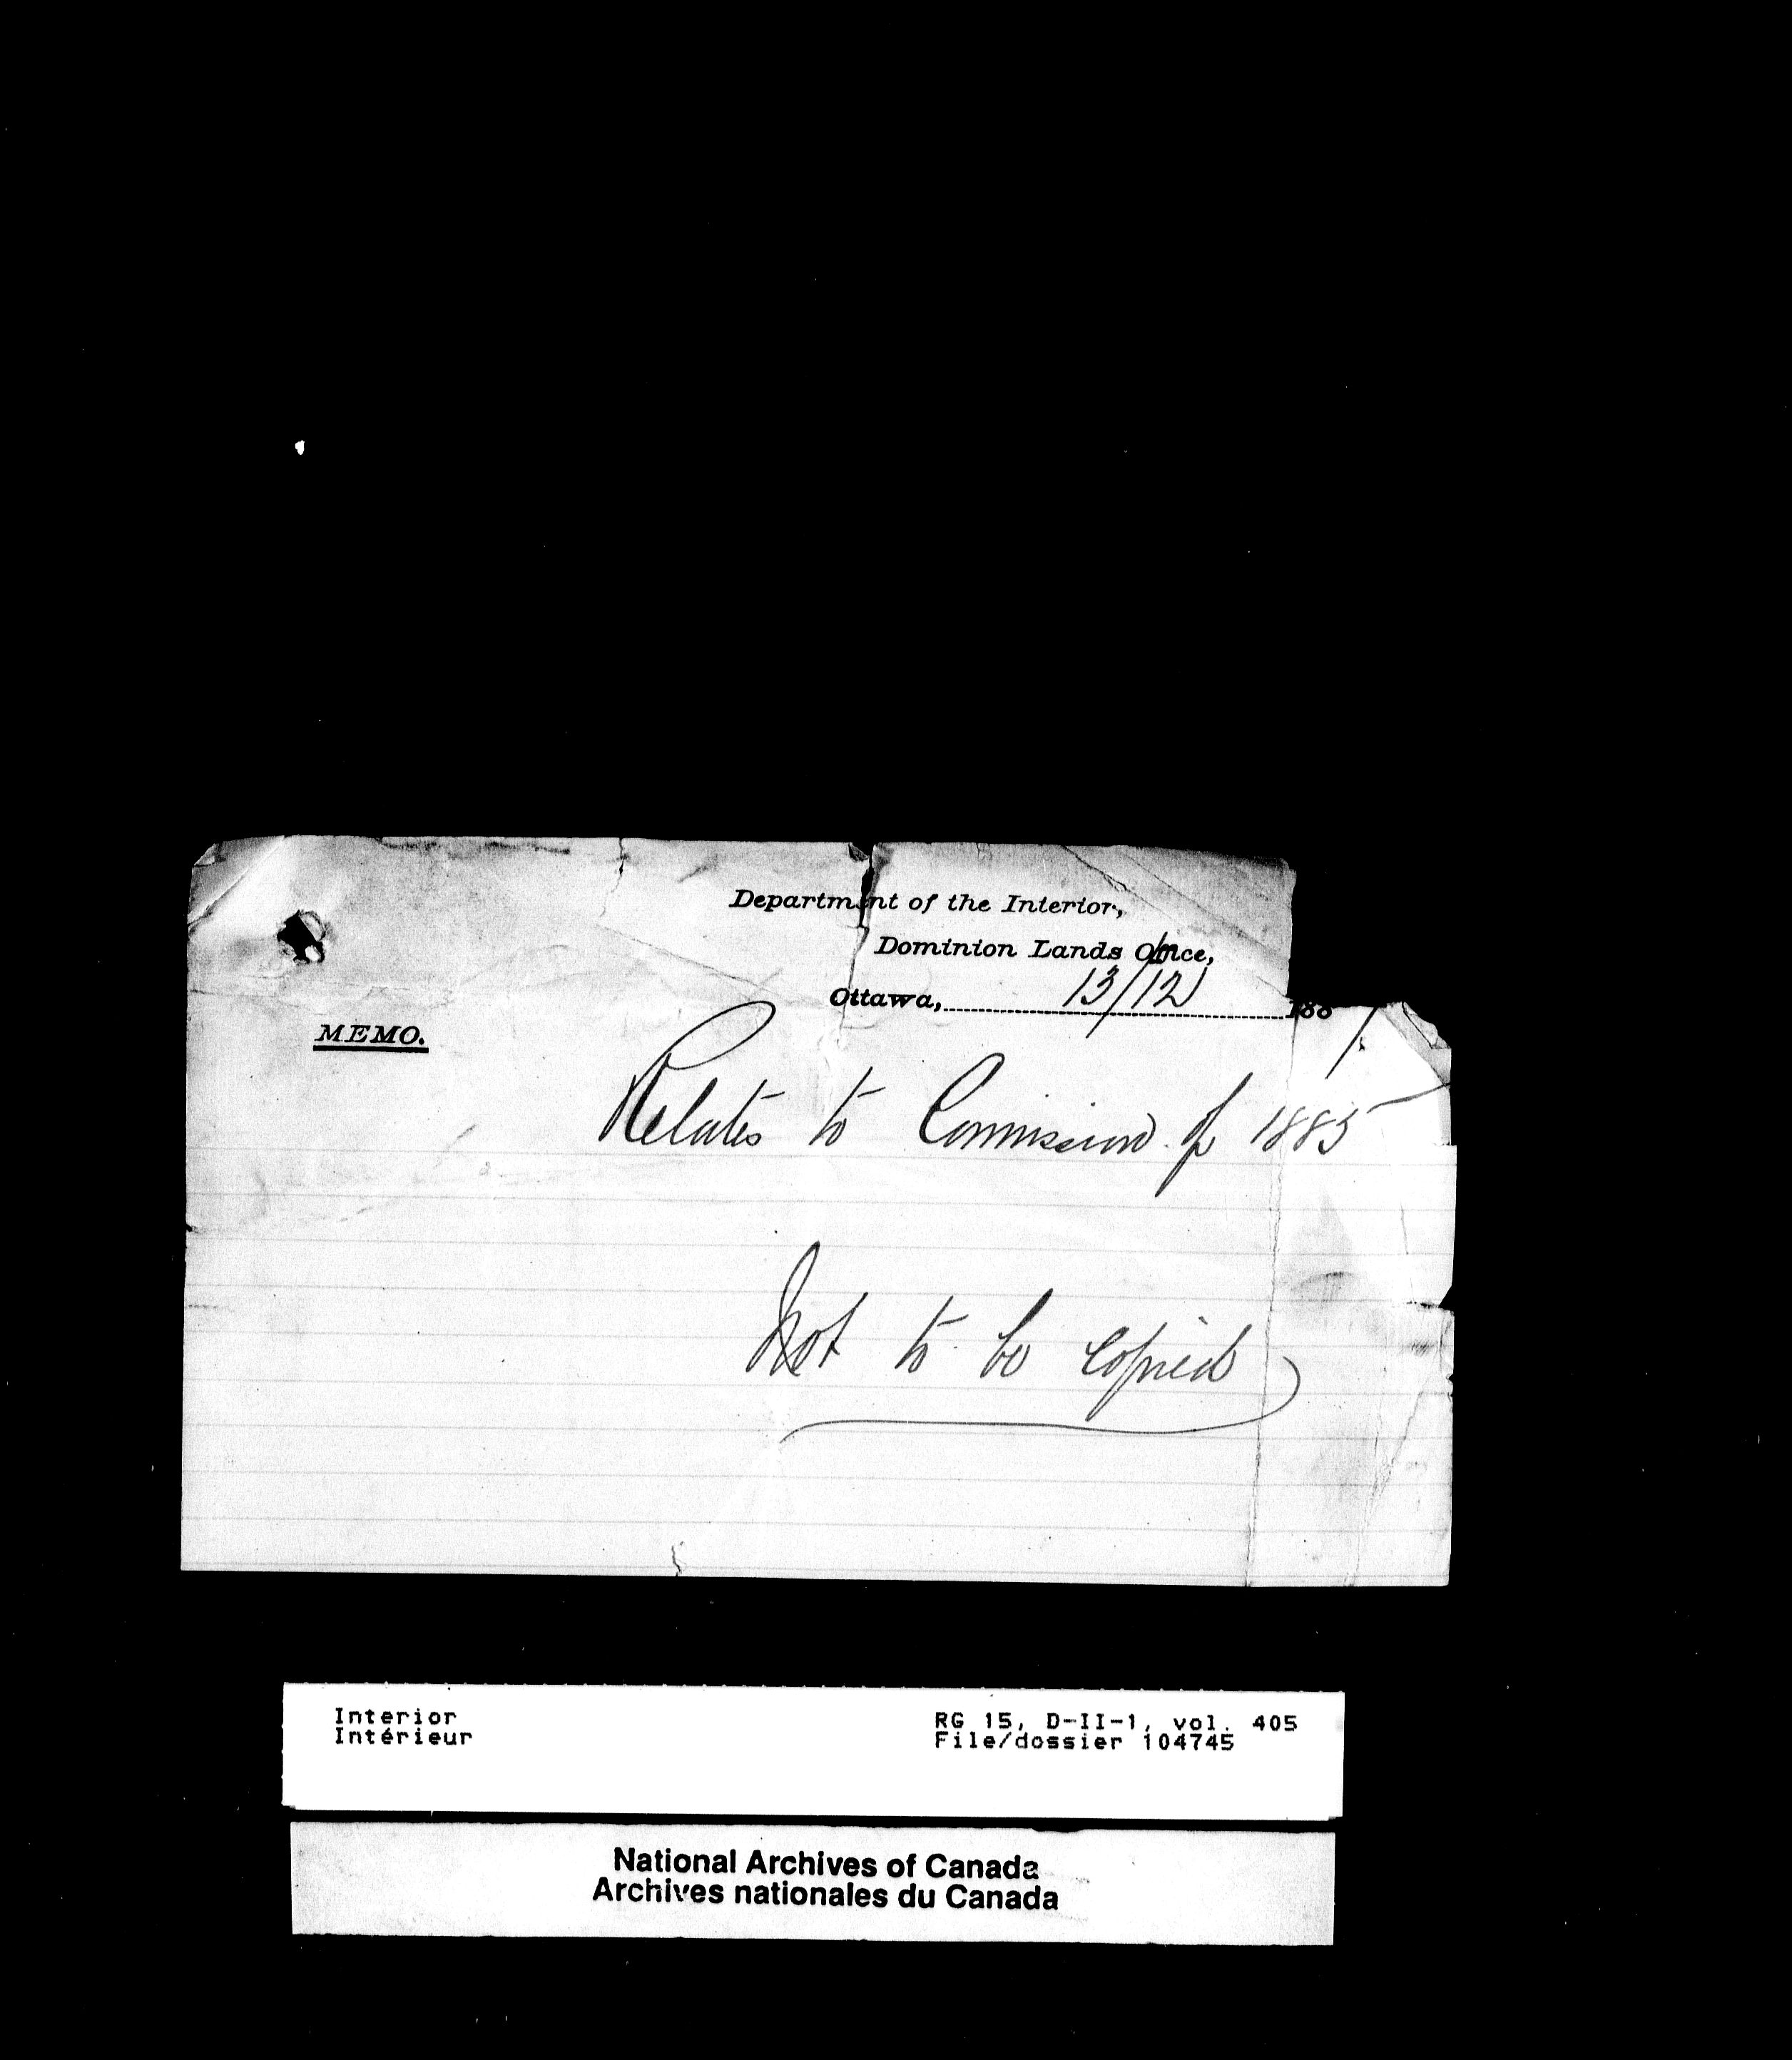 Department of the Interior,
Dominion Lands Office,
Ottawa, 13/12 188
MEMO.
Relates to Commission of 1885
Not to be copied
Interior
Intérieur
RG 15, D-II-1, vol. 405
File/dossier 104745
National Archives of Canada
Archives nationales du Canada